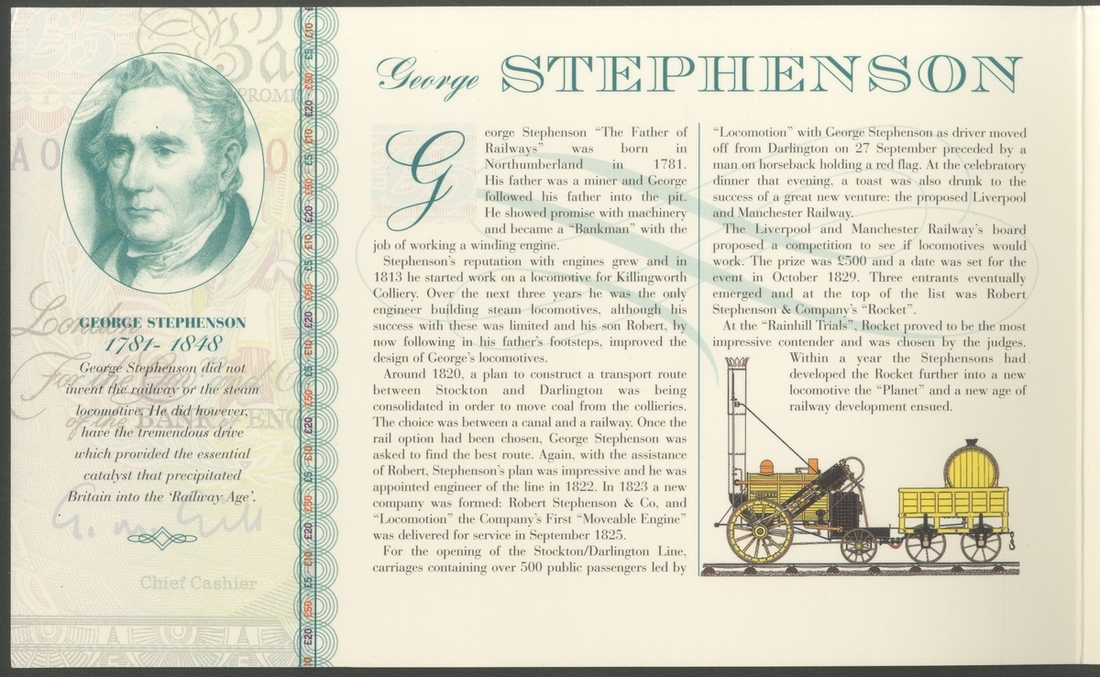 George STEPHENSON
George Stephenson "The Father of
Railways" was born in
Northumberland in 1781.
His father was a miner and George
followed his father into the pit.
He showed promise with machinery
and became a "Bankman" with the
job of working a winding engine.
Stephenson's reputation with engines grew and in
1813 he started work on a locomotive for Killingworth
Colliery. Over the next three years he was the only
engineer building steam locomotives, although his
success with these was limited and his son Robert, by
now following in his father's footsteps, improved the
design of George's locomotives.
Around 1820, a plan to construct a transport route
between Stockton and Darlington was being
consolidated in order to move coal from the collieries.
The choice was between a canal and a railway. Once the
rail option had been chosen, George Stephenson was
asked to find the best route. Again, with the assistance
of Robert, Stephenson's plan was impressive and he was
appointed engineer of the line in 1822. In 1823 a new
company was formed: Robert Stephenson & Co, and
"Locomotion" the Company's First "Moveable Engine"
was delivered for service in September 1825.
For the opening of the Stockton/Darlington Line,
carriages containing over 500 public passengers led by
"Locomotion" with George Stephenson as driver moved
off from Darlington on 27 September preceded by a
man on horseback holding a red flag. At the celebratory
dinner that evening, a toast was also drunk to the
success of a great new venture: the proposed Liverpool
and Manchester Railway.
The Liverpool and Manchester Railway's board
proposed a competition to see if locomotives would
work. The prize was £500 and a date was set for the
event in October 1829. Three entrants eventually
emerged and at the top of the list was Robert
Stephenson & Company's "Rocket".
At the "Rainhill Trials", Rocket proved to be the most
impressive contender and was chosen by the judges.
Within a year the Stephensons had
developed the Rocket further into a new
locomotive the "Planet" and a new age of
railway development ensued.
GEORGE STEPHENSON
1781- 1848
George Stephenson did not
invent the railway or the steam
locomotive. He did however,
have the tremendous drive
which provided the essential
catalyst that precipitated
Britain into the 'Railway Age'.
Chief Cashier